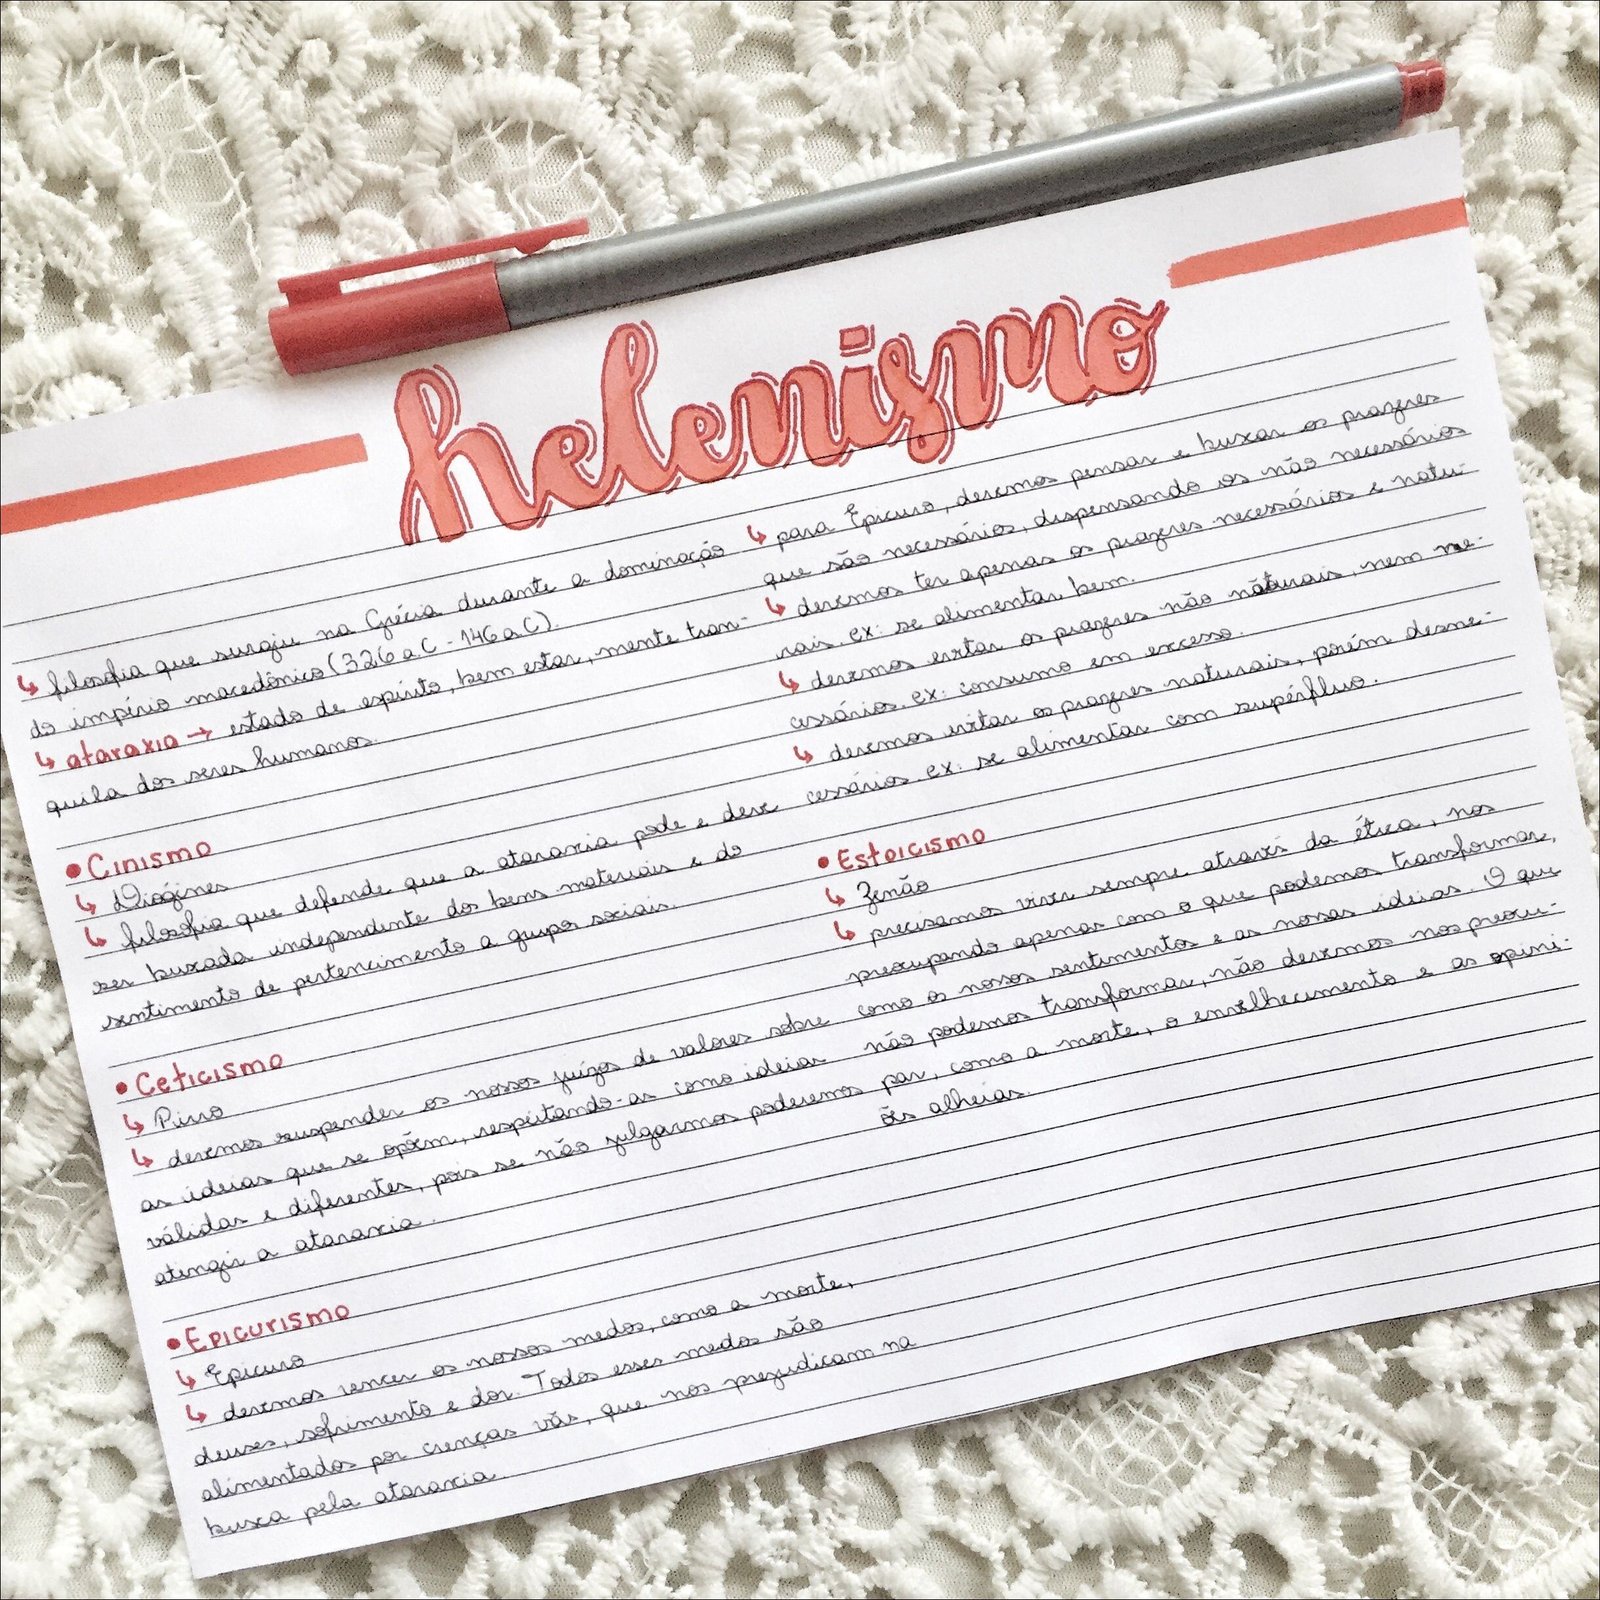 helenismo
↳ filosofia que surgiu na Grécia durante a dominação
do império macedônico (326 a C - 146 a C).
↳ ataraxia → estado de espírito, bem estar, mente tran-
quila dos seres humanos.
• Cinismo
↳ Diógenes
↳ filosofia que defende que a ataraxia pode e deve
ser buscada independente dos bens materiais e do
sentimento de pertencimento a grupos sociais.
• Ceticismo
↳ Pirro
↳ devemos suspender os nossos juízos de valores sobre
as ideias que se opõem, respeitando-as como ideias
válidas e diferentes, pois se não julgarmos poderemos
atingir a ataraxia.
• Epicurismo
↳ Epicuro
↳ devemos vencer os nossos medos, como a morte,
deuses, sofrimento e dor. Todos esses medos são
alimentados por crenças vãs, que nos prejudicam na
busca pela ataraxia.
↳ para Epicuro, devemos pensar e buscar os prazeres
que são necessários, dispensando os não necessários
↳ devemos ter apenas os prazeres necessários e natu-
rais. ex: se alimentar bem.
↳ devemos evitar os prazeres não naturais, nem ne-
cessários. ex: consumo em excesso.
↳ devemos evitar os prazeres naturais, porém desne-
cessários. ex: se alimentar com supérfluo.
• Estoicismo
↳ Zenão
↳ precisamos viver sempre através da ética, nos
preocupando apenas com o que podemos transformar,
como os nossos sentimentos e as nossas ideias. O que
não podemos transformar, não devemos nos preocu-
par, como a morte, o envelhecimento e as opini-
ões alheias.